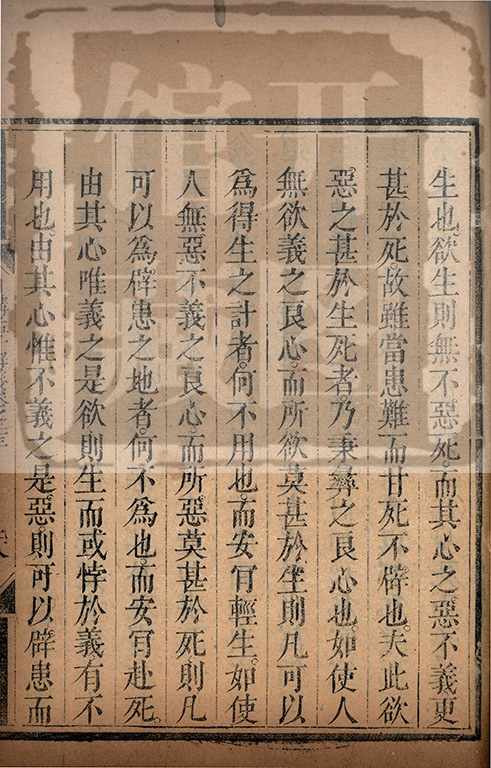 生也。欲生則無不惡死。而其心之惡不義更
甚於死故雖當患難而甘死不辟也。夫此欲
惡之甚於生死者。乃秉彝之良心也。如使人
無欲義之良心。而所欲莫甚於生則凡可以
為得生之計者。何不用也。而安肎輕生。如使
人無惡不義之良心。而所惡莫甚於死則凡
可以為辟患之地者。何不為也而安肎赴死。
由其心唯義之是欲則生而或悖於義有不
用也。由其心惟不義之是惡。則可以辟患而